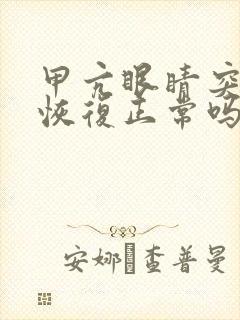 甲亢眼睛突
恢復正常吗
安娜查普曼